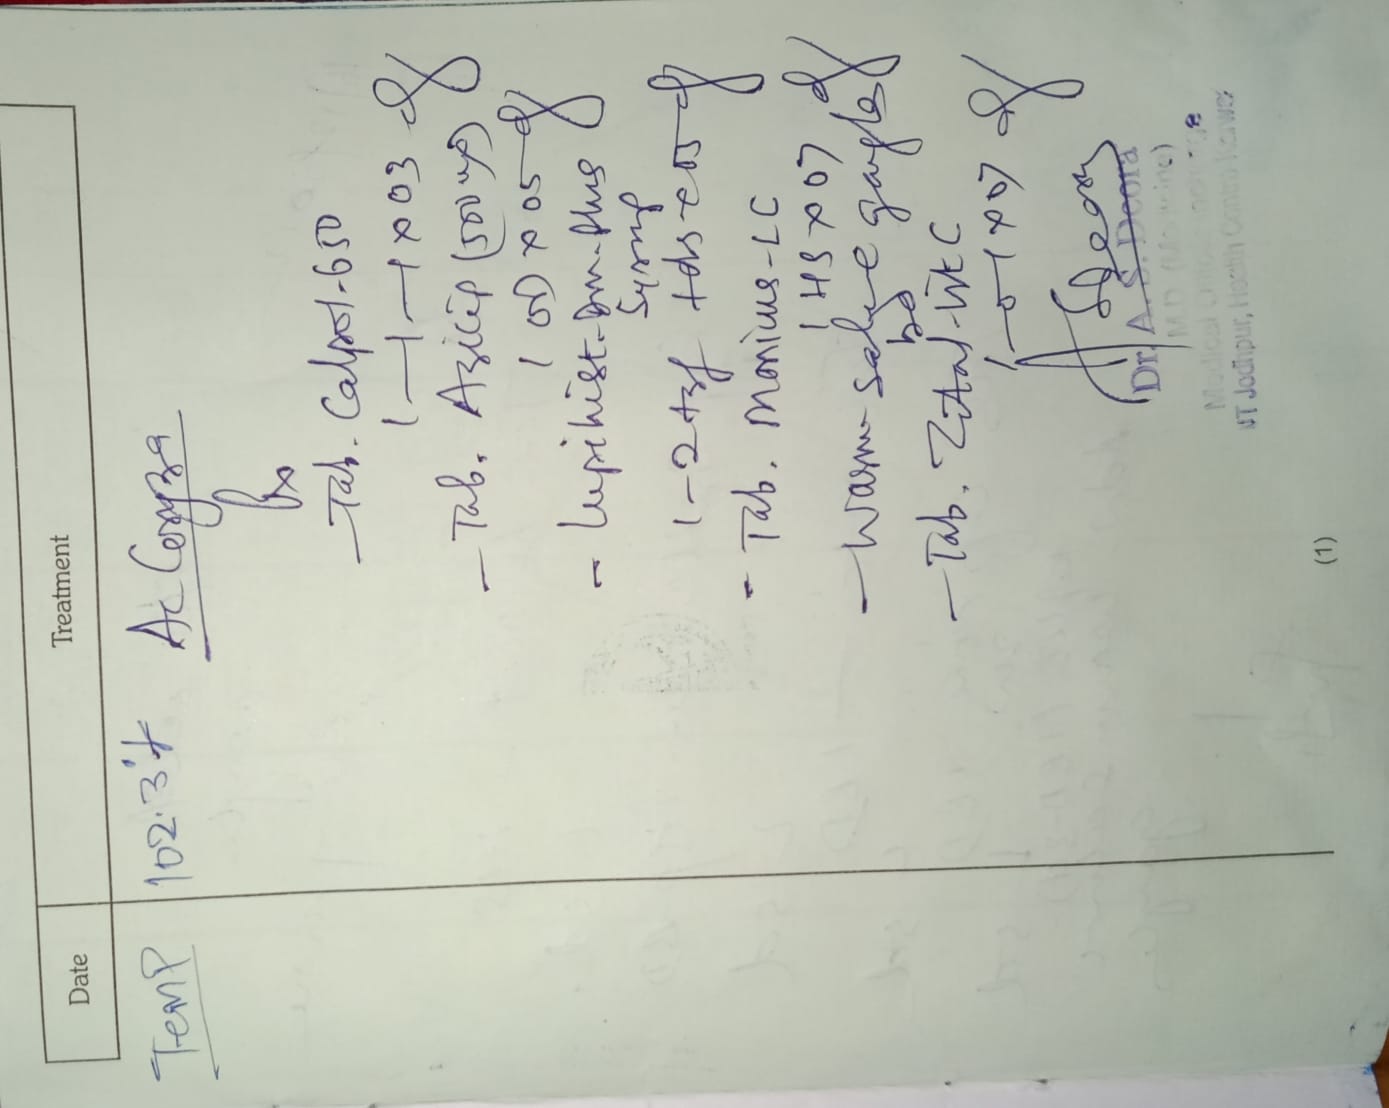 Date Treatment
Temp 102.3°f Ac Coryza
Rx
- Tab. Calpol-650
1-1-1 x 03 d
- Tab. Azicip (500 mg)
1 OD x 05 d
- Lupihist-Dm-Plus
Syrup
1-2 tsf tds x 05 d
- Tab. Monicus-LC
1 HS x 07 d
- Warm saline gargles
bd
- Tab. Zital-Vit C
1-0-1 x 07 d
Dr. A. S. Deora
M.D (Medicine)
Medical Officer Incharge
IIT Jodhpur, Health Centre Karwar
(1)